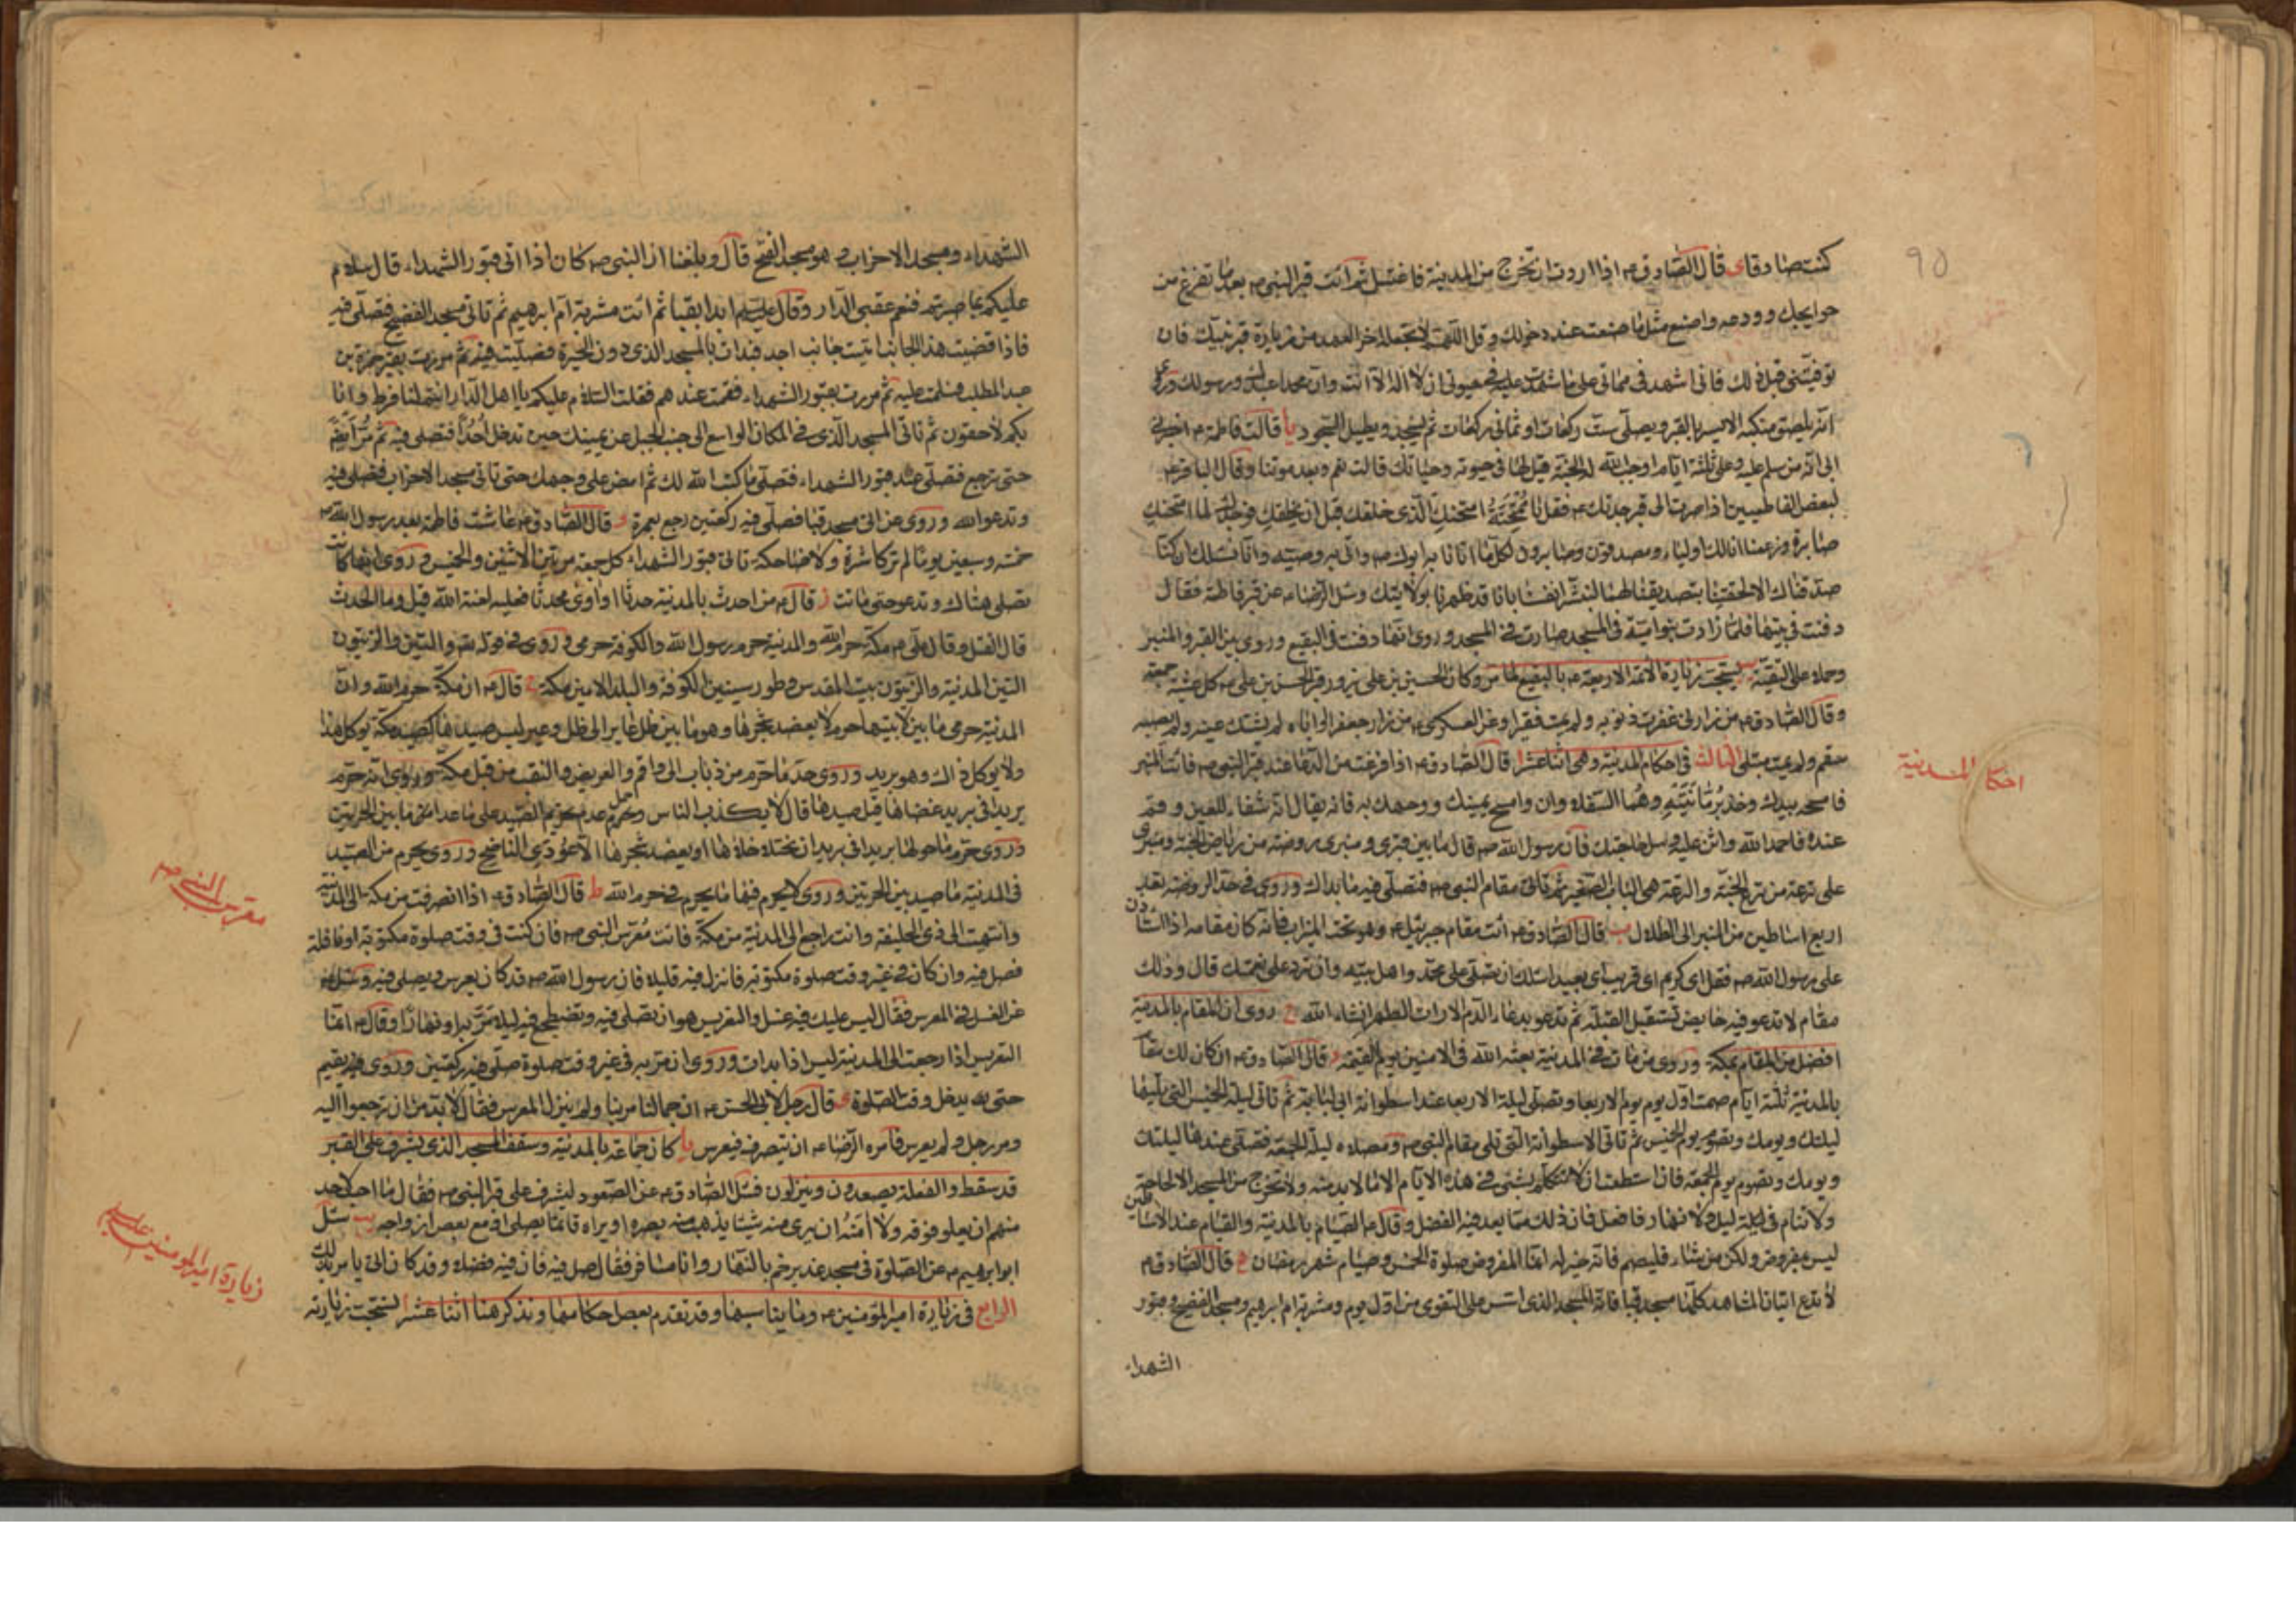 ٩٥
كنت صادقا ى قال الصادق ع اذا اردت ان تخرج من المدينة فاغتسل ثم ائت قبر النبى ص بعد ما تفرغ من
حوايجك وودعه واصنع مثل ما صنعت عند دخولك وقل اللهم لا تجعله اخر العهد من زيارة قبر نبيك فان
توفيتنى قبل ذلك فانى اشهد فى مماتى على ما شهدت عليه فى حيوتى ان لا اله الا انت وان محمدا عبدك ورسولك وروى
انه يلصق منكبه الايسر بالقبر ويصلى ست ركعات او ثمانى ركعات ثم يسجد ويطيل السجود يا قالت فاطمة ع اخبرنى
ابى انه من سلم عليه وعلى ثلثة ايام اوجب الله له الجنة قيل لها فى حيوته وحياتك قالت نعم وبعد موتنا وقال الباقر ع
لبعض الفاطميين اذا صرت الى قبر جدتك ع فقل يا ممتحنة امتحنك الذى خلقك قبل ان يخلقك فوجدك لما امتحنك
صابرة وزعمنا انا لك اولياء ومصدقون وصابرون لكل ما اتانا به ابوك ص واتى به وصيه وانا نسئلك ان كنا
صدقناك الا لحقتنا بتصديقنا لهما لنبشر انفسنا بانا قد طهرنا بولايتك وسئل الرضا ع عن قبر فاطمة فقال
دفنت فى بيتها فلما زادت بنو امية فى المسجد صارت فى المسجد وروى انها دفنت فى البقيع وروى بين القبر والمنبر
وحمله على التقية يب يستحب زيارة الائمة الاربعة ع بالبقيع لما مر وكان الحسين بن على يزور قبر الحسن بن على ع كل عشية جمعة
وقال الصادق ع من زارنى غفرت ذنوبه ولم يمت فقيرا وعن العسكرى ع من زار جعفر او اباه لم يشتك عينه ولم يصبه
سقم ولم يمت مبتلى الثالث فى احكام المدينة وهى اثنا عشر ا قال الصادق ع اذا فرغت من الدعا عند قبر النبى ص فائت المنبر
فامسحه بيدك وخذ برمانتيه وهما السفلاوان وامسح عينيك ووجهك به فانه يقال انه شفاء للعين وقم
عنده فاحمد الله واثن عليه وسل حاجتك فان رسول الله ص قال ما بين قبرى ومنبرى روضة من رياض الجنة ومنبرى
على ترعة من ترع الجنة والترعة هى الباب الصغير ثم تاتى مقام النبى ص فتصلى فيه ما بدا لك وروى فى حد الروضة بعد
اربع اساطين من المنبر الى الظلال ب قال الصادق ع ائت مقام جبرئيل ع وهو تحت الميزاب فانه كان مقامه اذا استاذن
على رسول الله ص فقل اى كريم اى قريب اى بعيد اسئلك ان تصلى على محمد واهل بيته وان ترد على نعمتك قال وذلك
مقام لا تدعو فيه حايض تستقبل القبلة ثم تدعو بدعاء الدم الا رات الطهر انشاء الله ج روى ان المقام بالمدينة
افضل من المقام بمكة وروى من مات فى المدينة بعثه الله فى الامنين يوم القيمة د قال الصادق ع ان كان لك مقام
بالمدينة ثلثة ايام صمت اول يوم يوم الاربعا وتصلى ليلة الاربعا عند اسطوانة ابى لبابة ثم تاتى ليلة الخميس التى تليها
ليلتك ويومك وتصوم يوم الخميس ثم تاتى الاسطوانة التى تلى مقام النبى ص ومصلاه ليلة الجمعة فتصلى عندها ليلتك
ويومك وتصوم يوم الجمعة فان استطعت ان لا تتكلم بشئ فى هذه الايام الا ما لا بد منه ولا تخرج من المسجد الا لحاجة
ولا تنام فى ليلة ليل ولا نهار فافعل فان ذلك مما يعد فيه الفضل وقال ع الصيام بالمدينة والقيام عند الاساطين
ليس بمفروض ولكن من شاء فليصم فانه خير له انما المفروض صلوة الخمس وصيام شهر رمضان ه قال الصادق ع
لا تدع اتيان المشاهد كلها مسجد قبا فانه المسجد الذى اسس على التقوى من اول يوم ومشربة ام ابرهيم ومسجد الفضيخ وقبور
الشهداء
احكام المدينة
الشهداء ومسجد الاحزاب وهو مسجد الفتح قال وبلغنا ان النبى ص كان اذا اتى قبور الشهداء قال سلام
عليكم بما صبرتم فنعم عقبى الدار وقال عليه السلم ابدا بقبا ثم ائت مشربة ام ابرهيم ثم تاتى مسجد الفضيخ فتصلى فيه
فاذا قضيت هذا الجانب اتيت جانب احد فبدات بالمسجد الذى دون الحيرة فصليت فيه ثم مررت بقبر حمزة بن
عبد المطلب فسلمت عليه ثم مررت بقبور الشهداء فقمت عندهم فقلت السلام عليكم يا اهل الدار انتم لنا فرط وانا
بكم لاحقون ثم تاتى المسجد الذى فى المكان الواسع الى جنب الجبل عن يمينك حين تدخل احدا فتصلى فيه ثم مر ايضا
حتى ترجع فتصلى عند قبور الشهداء فتصلى ما كتب الله لك ثم امض على وجهك حتى تاتى مسجد الاحزاب فتصلى فيه
وتدعو الله وروى من اتى مسجد قبا فصلى فيه ركعتين رجع بعمرة و قال الصادق ع عاشت فاطمة بعد رسول الله ص
خمسة وسبعين يوما لم تر كاشرة ولا ضاحكة تاتى قبور الشهداء كل جمعة مرتين الاثنين والخميس وروى انها كانت
تصلى هناك وتدعو حتى ماتت ز قال ع من احدث بالمدينة حدثا او اوى محدثا فعليه لعنة الله قيل وما الحدث
قال القتل وقال على ع مكة حرم الله والمدينة حرم رسول الله والكوفة حرمى وروى فى قوله تعالى والتين والزيتون
التين المدينة والزيتون بيت المقدس وطور سينين الكوفة والبلد الامين مكة ح قال ع ان مكة حرم الله وان
المدينة حرمى ما بين لابتيها حرم لا يعضد شجرها وهو ما بين ظل عاير الى ظل وعير ليس صيدها كصيد مكة يوكل هذا
ولا يوكل ذاك وهو بريد وروى حد ما حرم من ذباب الى واقم والعريض والنقب من قبل مكة وروى انه حرم
بريدا فى بريد غضاها قيل صيدها قال لا يكذب الناس وحمل عدم تحريم الصيد على ما عدا ما بين الحرتين
وروى حرم ما حولها بريدا فى بريد ان يختلا خلاها او يعضد شجرها الا عودى الناضح وروى يحرم من الصيد
فى المدينة ما صيد بين الحرتين وروى لا يحرم فيها ما يحرم فى حرم الله ط قال الصادق ع اذا انصرفت من مكة الى المدينة
وانتهيت الى ذى الحليفة وانت راجع الى المدينة من مكة فائت معرس النبى ص فان كنت فى وقت صلوة مكتوبة او نافلة
فصل فيه وان كان فى غير وقت صلوة مكتوبة فانزل فيه قليلا فان رسول الله ص قد كان يعرس ويصلى فيه وسئل ع
عن الغسل فى المعرس فقال ليس عليك فيه غسل والتعريس هو ان تصلى فيه وتضطجع فيه ليلا تمر به او نهارا وقال ع انما
التعريس اذا رجعت الى المدينة ليس اذا بدات وروى ان مر به فى غير وقت صلوة صلى فيه ركعتين وروى فيه يقيم
حتى يدخل وقت الصلوة ى قال رجل لابى الحسن ع ان جمالنا مر بنا ولم ينزل المعرس فقال لا بد من ان ترجعوا اليه
ومر رجل ولم يعرس فامره الرضا ع ان ينصرف فيعرس يا كان جماعة بالمدينة وسقف المسجد الذى يشرف على القبر
قد سقط والفعلة يصعدون وينزلون فسئل الصادق ع عن الصعود ليشرف على قبر النبى ص فقال ما احب لاحد
منهم ان يعلو فوقه ولا امنه ان يرى منه شيئا يذهب منه بصره او يراه قائما يصلى او مع بعض ازواجه يب سئل
ابو ابرهيم ع عن الصلوة فى مسجد غدير خم بالنهار وانا مسافر فقال صل فيه فان فيه فضلا وقد كان ابى يامر بذلك
الرابع فى زيارة امير المؤمنين ع وما يناسبها وقد تقدم بعض احكامها ونذكر هنا اثنا عشر ا يستحب زيارته
معرس النبى ص
زيارة امير المومنين عليه السلم